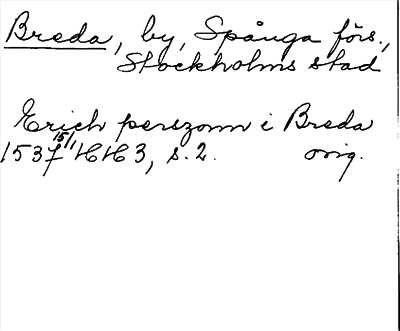 Breda, by, Spånga förs.,
Stockholms stad
Erich perszonn i Breda
1537 15/1 HH 3, s. 2. orig.